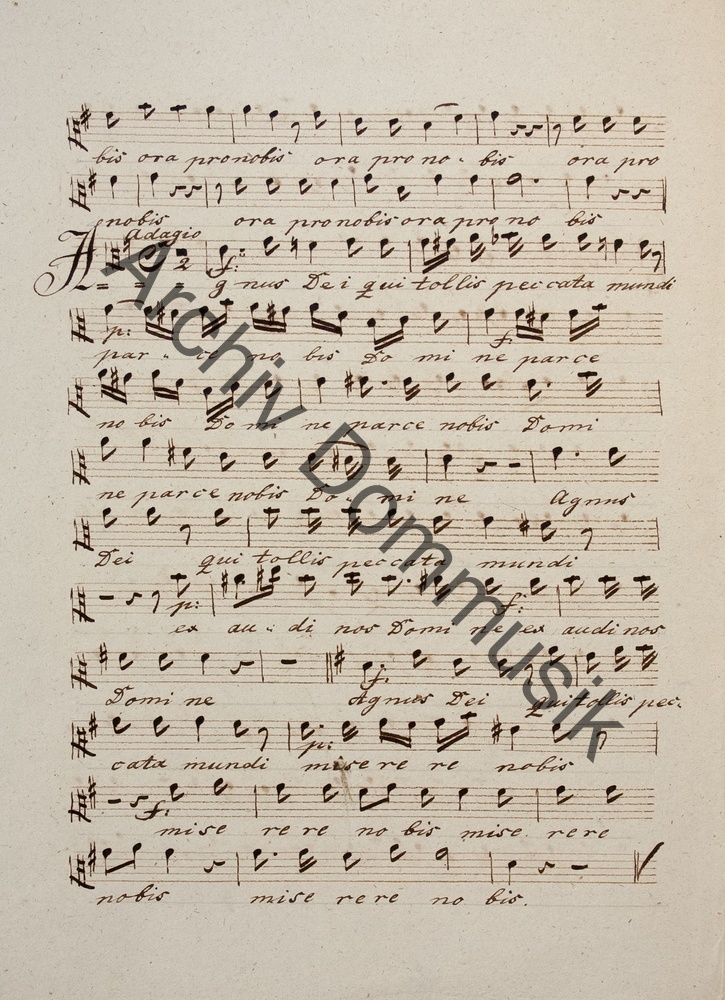 bis ora pronobis ora pro no - bis ora pro
nobis ora pronobis ora pro no bis
Adagio
A = = gnus Dei qui tollis peccata mundi
f:
p: f.
par - ce no bis Do mi ne parce
no bis Do mi ne parce nobis Domi
ne parce nobis Do - mi ne Agnus
Dei qui tollis peccata mundi
p: f:
ex au - di nos Domi ne ex audi nos
f.
Domi ne Agnus Dei qui tollis pec-
p:
cata mundi mise re re nobis
f:
mise re re no bis mise re re
nobis mise re re no bis.
Archiv Dommusik